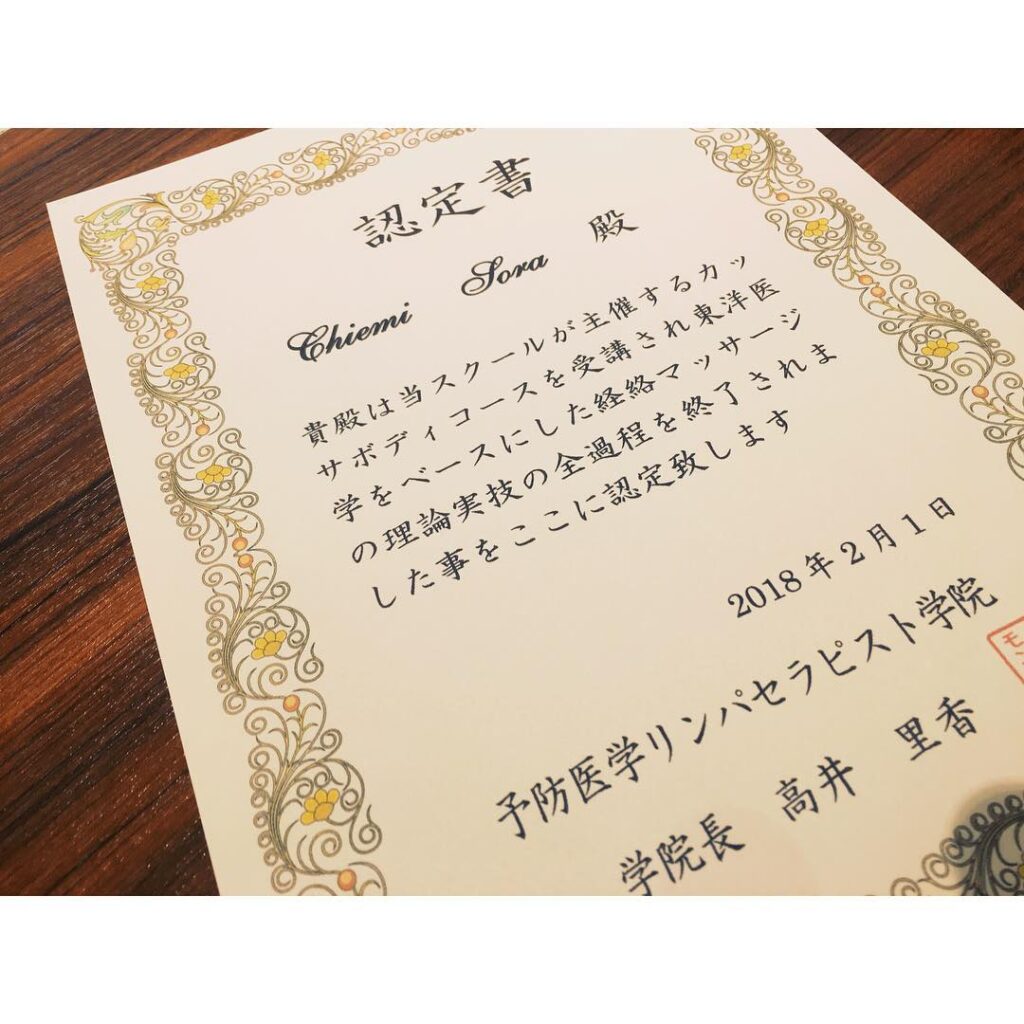 認定書
Chiemi Sora 殿
貴殿は当スクールが主催するカッ
サボディコースを受講され東洋医
学をベースにした経絡マッサージ
の理論実技の全過程を終了されま
した事をここに認定致します
2018年2月1日
予防医学リンパセラピスト学院
学院長 高井 里香